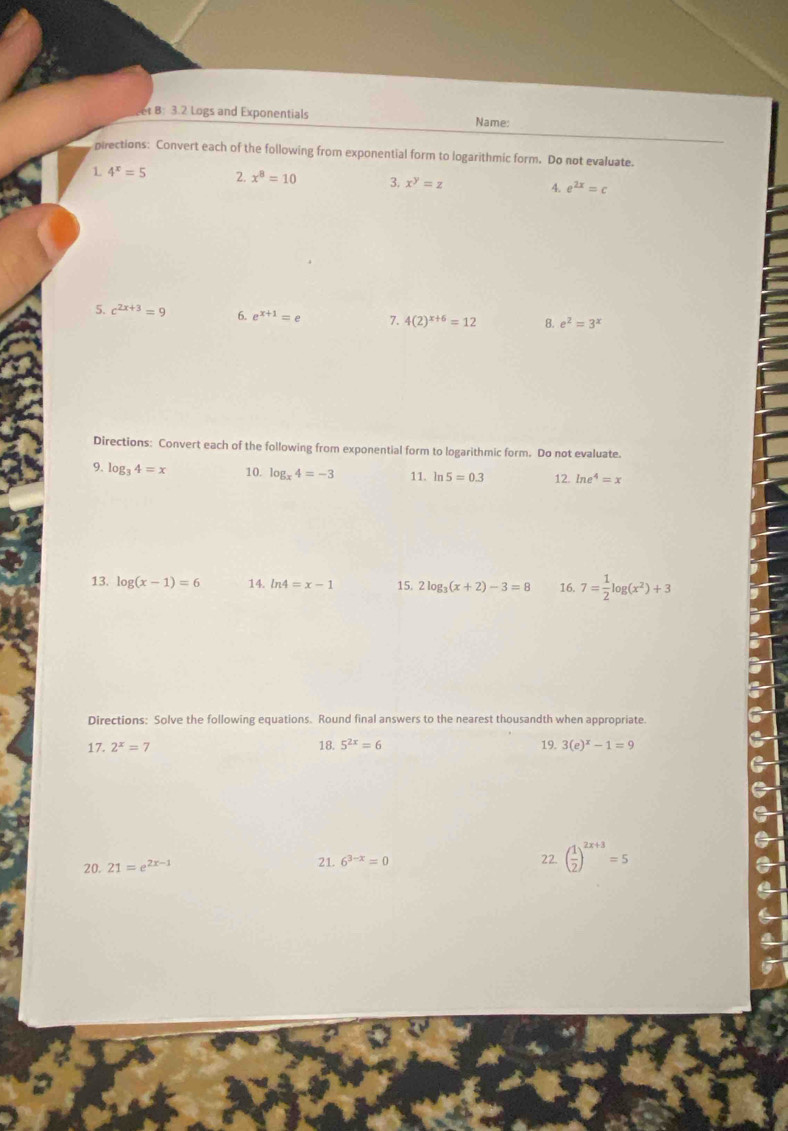 B: 3.2 Logs and Exponentials
Name:
Directions: Convert each of the following from exponential form to logarithmic form. Do not evaluate.
1. 4^x = 5 2. x^8 = 10 3. x^y = z 4. e^{2x} = c
5. c^{2x+3} = 9 6. e^{x+1} = e 7. 4(2)^{x+6} = 12 8. e^2 = 3^x
Directions: Convert each of the following from exponential form to logarithmic form. Do not evaluate.
9. log_3 4 = x 10. log_x 4 = −3 11. ln 5 = 0.3 12. lne^4 = x
13. log(x − 1) = 6 14. ln4 = x − 1 15. 2 log_3(x + 2) − 3 = 8 16. 7 = \frac{1}{2}log(x^2) + 3
Directions: Solve the following equations. Round final answers to the nearest thousandth when appropriate.
17. 2^x = 7 18. 5^{2x} = 6 19. 3(e)^x − 1 = 9
20. 21 = e^{2x−1} 21. 6^{3−x} = 0 22. (\frac{1}{2})^{2x+3} = 5